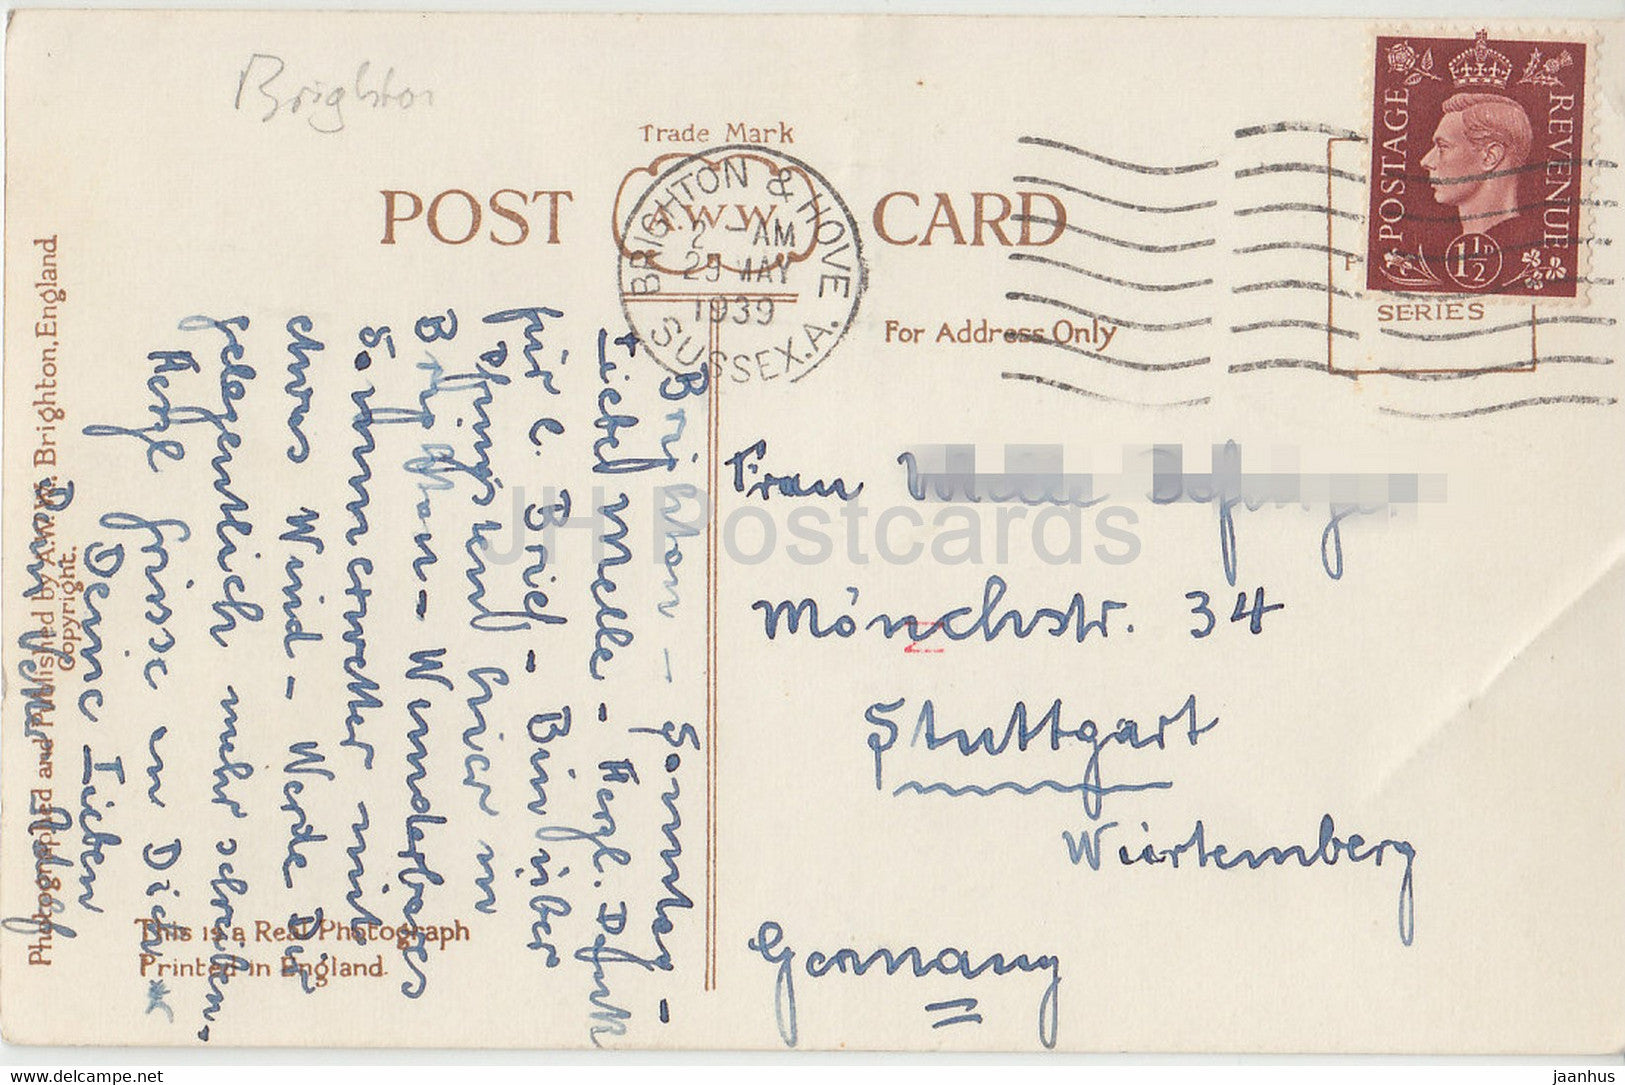 Brighton
Trade Mark
POST A.W.W. CARD
BRIGHTON & HOVE
2 - AM
29 MAY
1939
SUSSEX.A.
POSTAGE REVENUE
1½D
SERIES
For Address Only
Brighton - Sonntag -
Liebe Melle - Herzl. Dank
für l. Brief - Bin über
Pfingsten hier in
Brighton - Wunderbares
Sommerwetter mit
etwas Wind - Werde Dir
gelegentlich mehr schreiben.
Herzl Grüsse an Dich
Deine Lieben
Dein
Frau
Mönchstr. 34
Stuttgart
Würtemberg
Germany
Photographed and Published by A.W.W. Brighton, England
Copyright.
This is a Real Photograph
Printed in England.
JH Postcards
www.delcampe.net
jaanhus